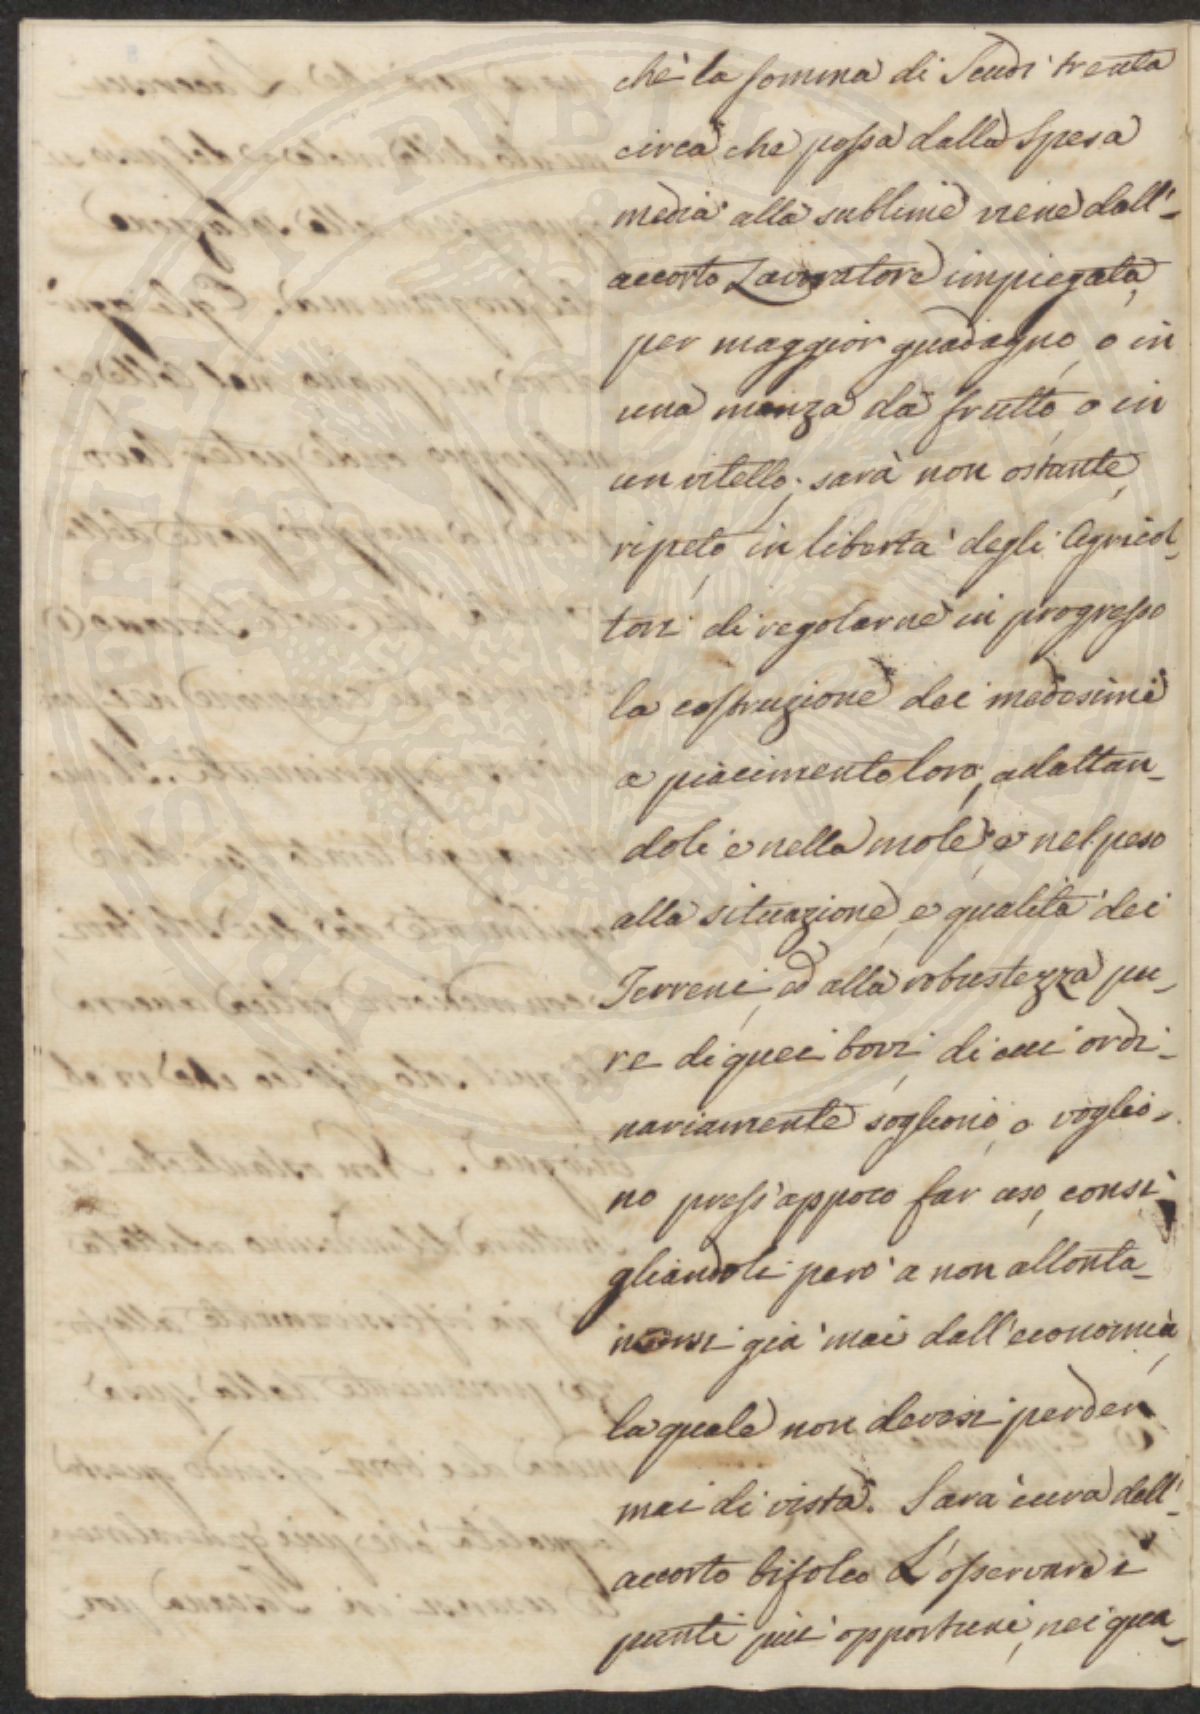 chè la somma di Scudi trenta
circa che passa dalla Spesa
media alla sublime viene dall'-
accorto Lavoratore impiegata,
per maggior guadagno, o in
una manza da frutto, o in
un vitello; sarà non ostante,
ripeto, in libertà degli Agricol-
tori di regolarne in progresso
la costruzione dei medesimi
a piacimento loro, adattan-
doli e nella mole, e nel peso
alla situazione, e qualità dei
Terreni, ed alla robustezza pu-
re di quei bovi, di cui ordi-
nariamente sogliono, o voglio-
no press'appoco far uso, consi-
gliandoli però a non allonta-
narsi già mai dall'economia,
la quale non devesi perder
mai di vista. Sarà cura dell'-
accorto bifolco L'osservare i
punti più opportuni, nei qua-